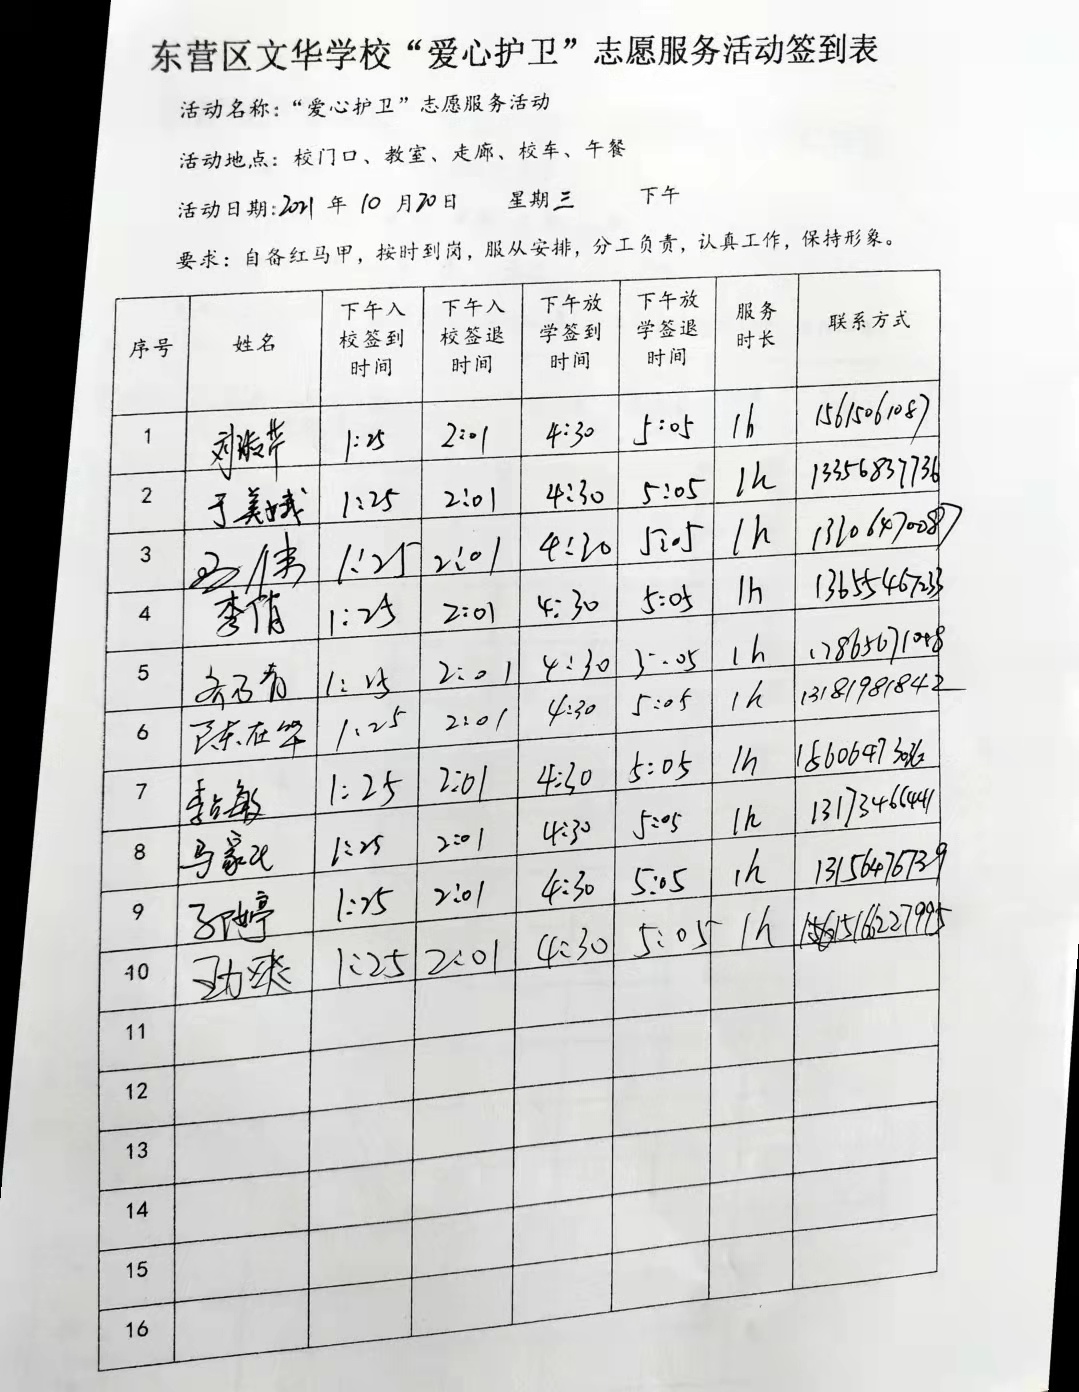 东营区文华学校“爱心护卫”志愿服务活动签到表
活动名称：“爱心护卫”志愿服务活动
活动地点：校门口、教室、走廊、校车、午餐
活动日期:2021 年 10 月20日 星期三 下午
要求：自备红马甲，按时到岗，服从安排，分工负责，认真工作，保持形象。
序号 姓名 下午入校签到时间 下午入校签退时间 下午放学签到时间 下午放学签退时间 服务时长 联系方式
1 1:25 2:01 4:30 5:05 1h 15615061087
2 于美娥 1:25 2:01 4:30 5:05 1h 13356837736
3 1:25 2:01 4:30 5:05 1h
4 李倩 1:25 2:01 4:30 5:05 1h 13655467233
5 1:25 2:01 4:30 5:05 1h
6 陈在华 1:25 2:01 4:30 5:05 1h 13181981842
7 1:25 2:01 4:30 5:05 1h
8 1:25 2:01 4:30 5:05 1h 13173466441
9 1:25 2:01 4:30 5:05 1h 13156476739
10 1:25 2:01 4:30 5:05 1h
11
12
13
14
15
16